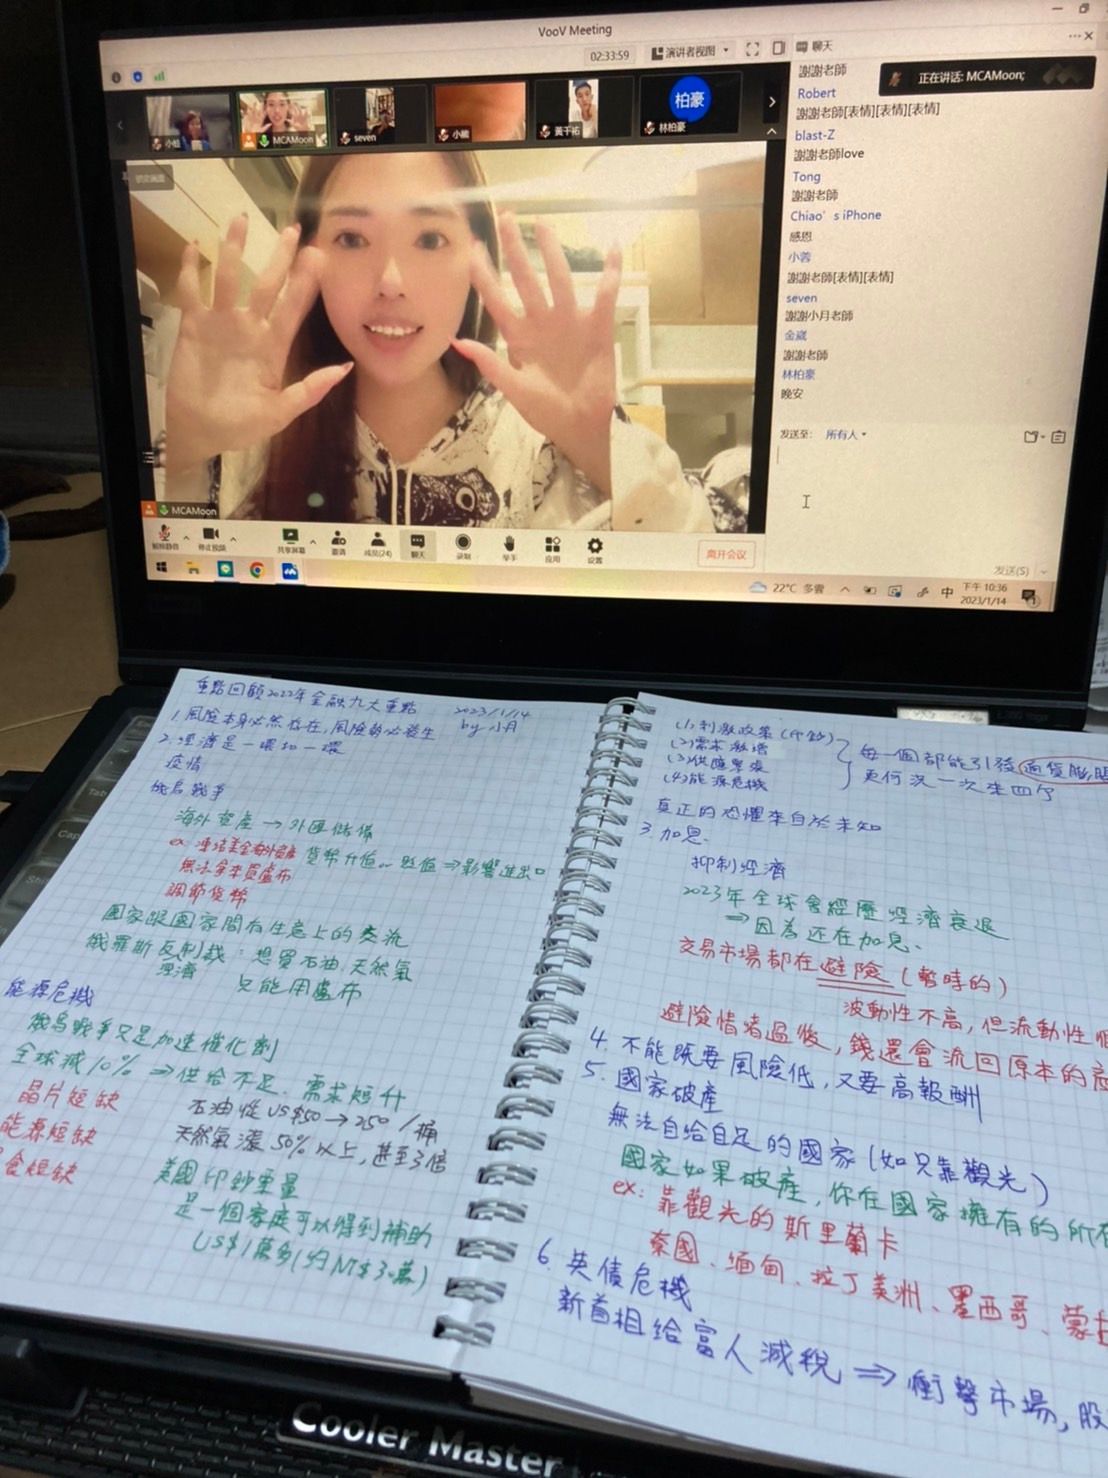 VooV Meeting
02:33:59
演讲者视图
聊天
正在讲话: MCAMoon;
小蛙
MCAMoon
seven
小熊
黃千祐
柏豪
林柏豪
謝謝老師
Robert
謝謝老師[表情][表情][表情]
blast-Z
謝謝老師love
Tong
謝謝老師
Chiao's iPhone
感恩
小蓉
謝謝老師[表情][表情]
seven
謝謝小月老師
金崴
謝謝老師
林柏豪
晚安
发送至: 所有人
MCAMoon
解除静音
停止视频
共享屏幕
邀请
成员(24)
聊天
录制
举手
应用
设置
离开会议
发送(S)
22°C 多雲
中
下午 10:36
2023/1/14
重點回顧2022年金融九大重點
2023/1/14
by 小月
1. 風險本身必然存在,風險勢必發生
2. 經濟是一環扣一環
疫情
俄烏戰爭
海外資產→外匯儲備
ex: 凍結美金海外資產
貨幣升值or貶值⇒影響進出口
無法拿來買盧布
調節貨幣
國家跟國家間有生意上的交流
俄羅斯反制裁:想買石油、天然氣
經濟
只能用盧布
能源危機
俄烏戰爭只是加速催化劑
全球減10% ⇒供給不足、需求短升
晶片短缺
石油從US$50→250/桶
能源短缺
天然氣漲50%以上,甚至3倍
食短缺
美國印鈔重量
是一個家庭可以得到補助
US$1萬多(約NT$30萬)
(1)刺激政策(印鈔)
(2)需求激增
(3)供應緊張
(4)能源危機
每一個都能引發通貨膨
更何況一次來四個
真正的恐懼來自於未知
3. 加息.
抑制經濟
2023年全球會經歷經濟衰退
⇒因為還在加息.
交易市場都在避險(暫時的)
波動性不高,但流動性
避險情緒過後,錢還會流回原本的
4. 不能既要風險低,又要高報酬
5. 國家破產
無法自給自足的國家(如只靠觀光)
國家如果破產,你在國家擁有的所
ex: 靠觀光的斯里蘭卡
泰國、緬甸、拉丁美洲、墨西哥、蒙
6. 英債危機
新首相給富人減稅⇒衝擊市場,股
Tab
Cap
Shift
Cooler Master